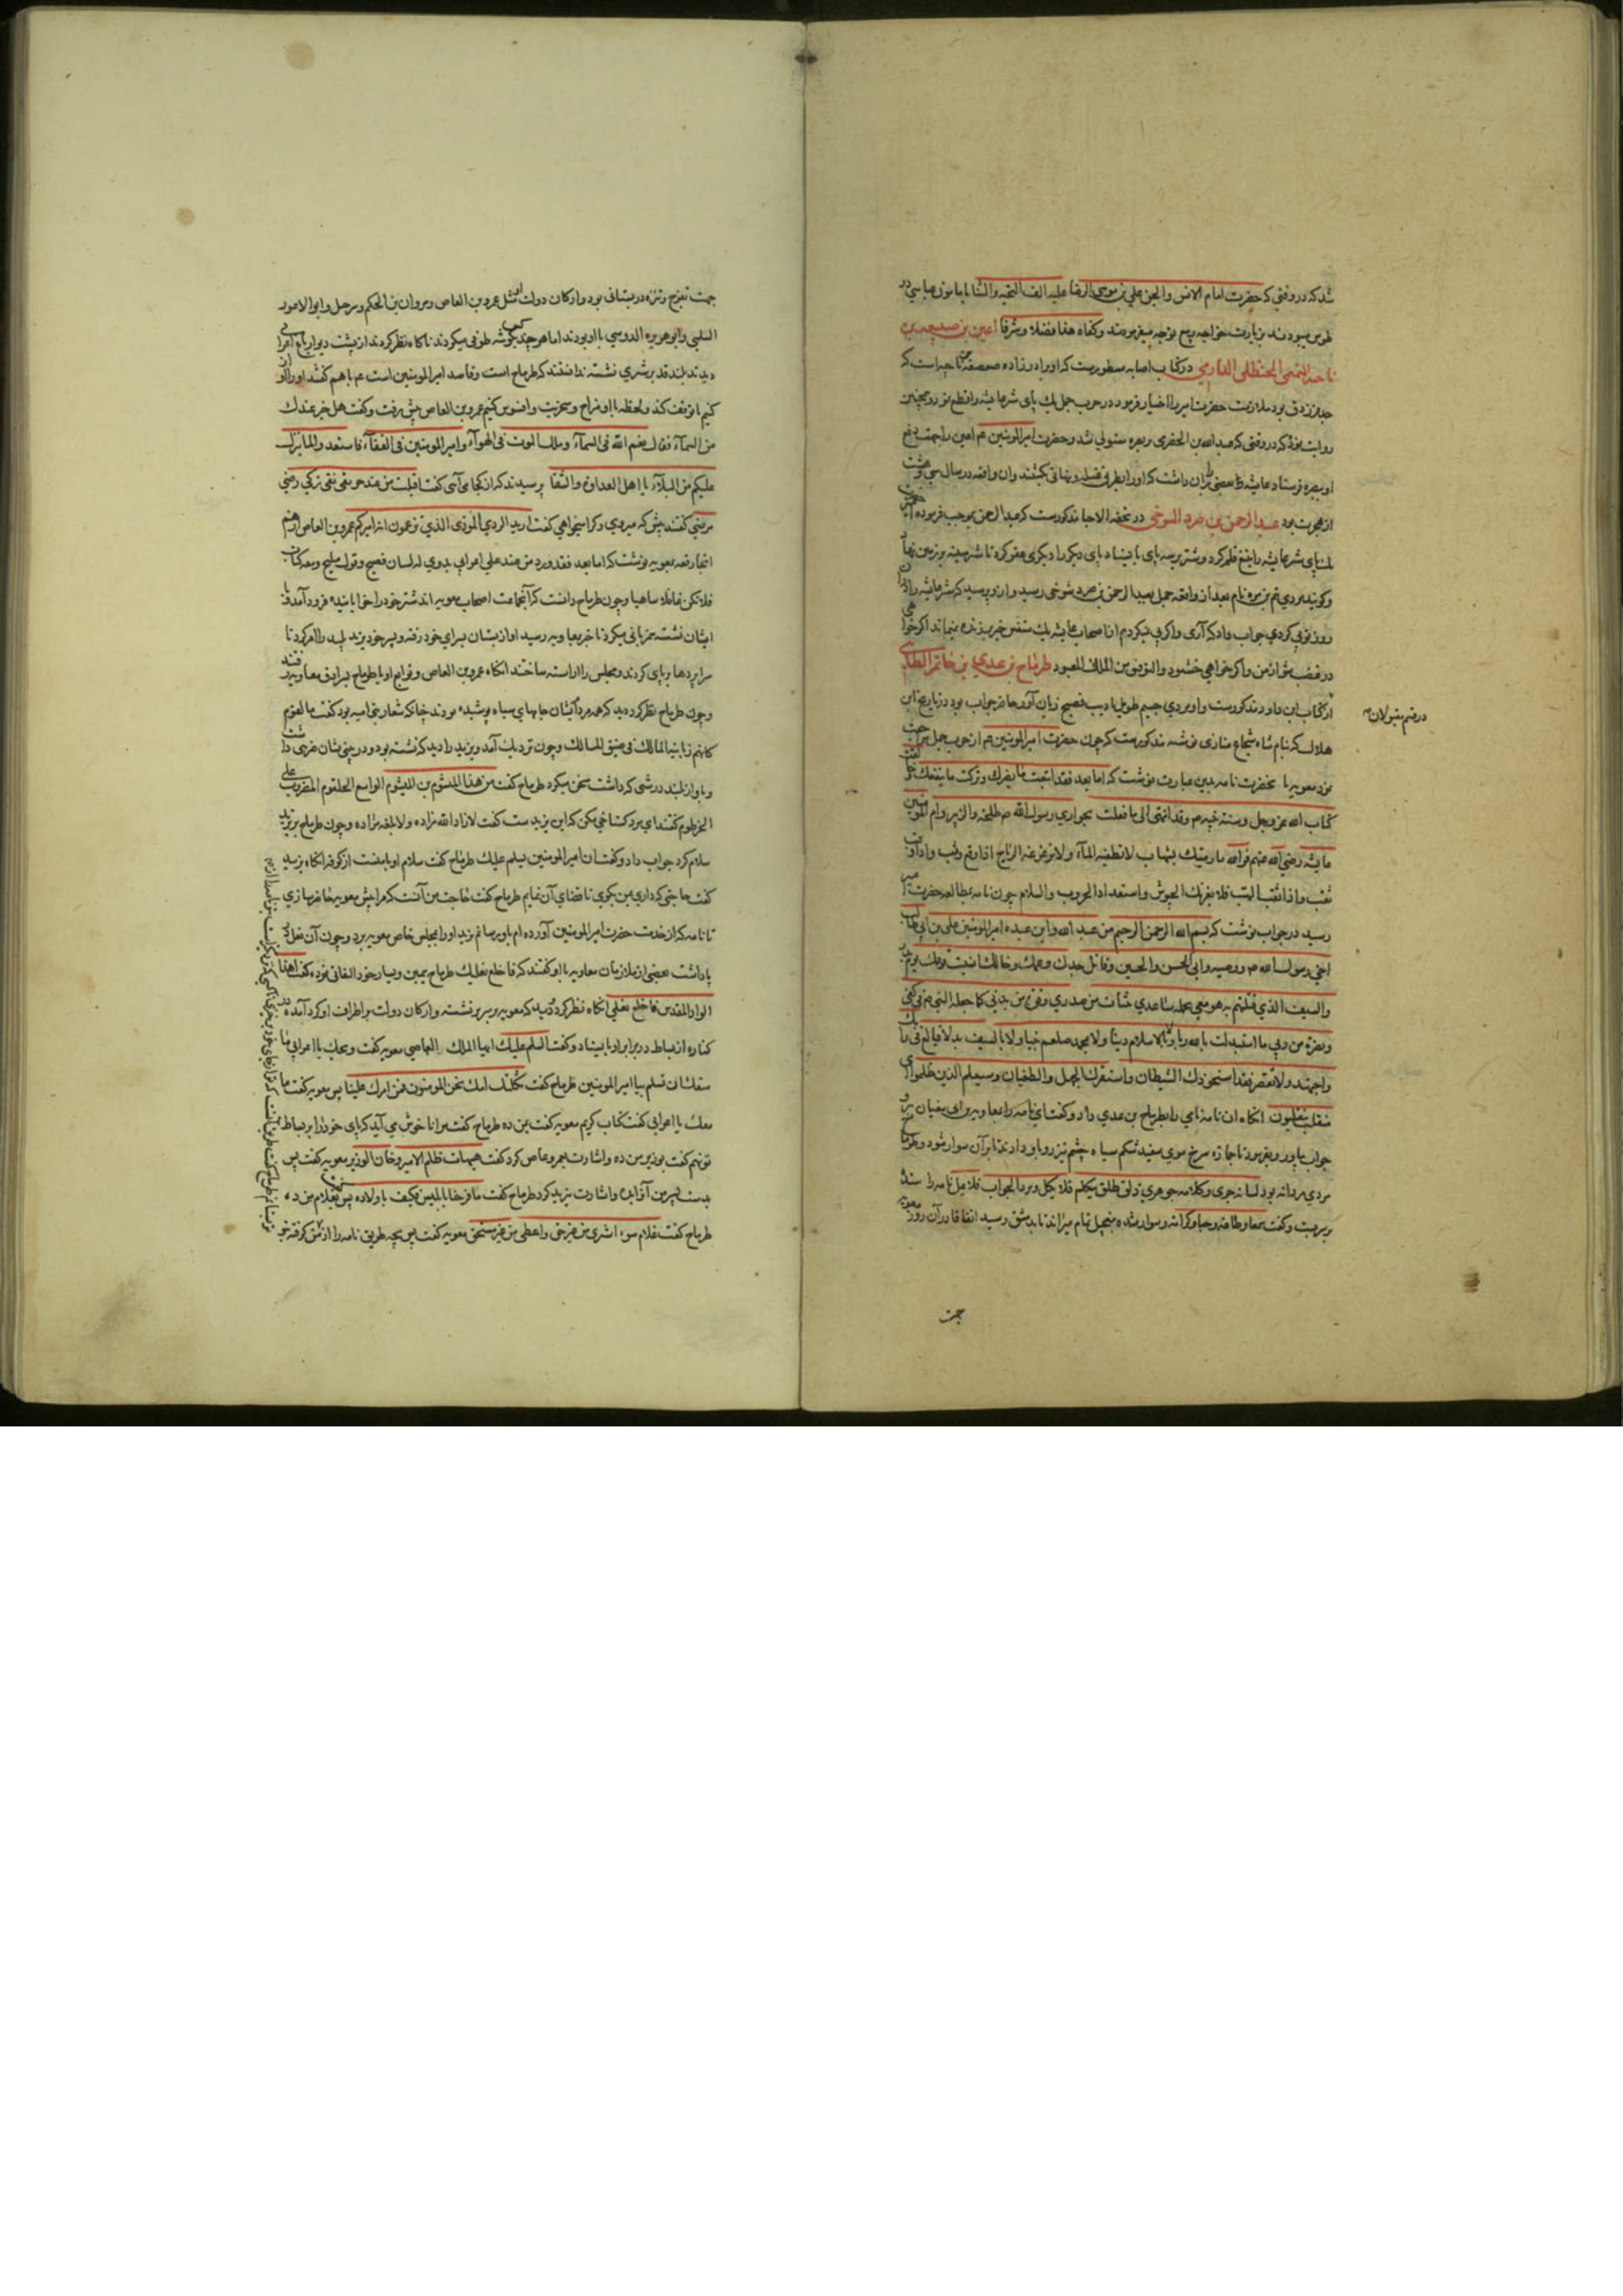 شد که در وقتی که حضرت امام الانس والجن علی بن موسی الرضا علیه الف التحیه والثنا با مامون عباسی در
طوس میبودند بزیارت خواجه ربیع توجه میفرمودند وکفاه هذا فضلا وشرفا اعین بن ضبیعه بن
ناجیه التمیمی الحنظلی الدارمی در کتاب اصابه مسطورست که او برادرزاده صعصعه بن ناجیه است که
جد فرزدق بود ملازمت حضرت امیر را اختیار فرمود در حرب جمل یک پای شتر عایشه را قطع نمود و همچنین
روایت نموده که در وقتی که عبد الله بن الحضرمی بر بصره مستولی شد وحضرت امیر المومنین عم اعین را جهت دفع
او ببصره فرستاد عایشه بعضی را بران داشت که او را بطریق غیله ونهانی بکشتند وان واقعه در سال سی وهشت
از هجرت بود عبد الرحمن بن صرد التنوخی در تحفه الاحبا مذکورست که عبد الرحمن بموجب فرموده حضرت امیر
پای شتر عایشه را بتیغ قلم کرد وشتر بر سه پای بایستاد پای دیگر را دیگری عقر کرد تا شتر بسینه بر زمین نهاد
وگویند مردی بن مره نام بعد از واقعه جمل بعبد الرحمن بن صرد تنوخی رسید وازو پرسید که شتر عایشه را دران
روز تو پی کردی جواب داد که آری واگر پی نیکردم از اصحاب عایشه یک متنفس خبر بر زنده نیماند اگر خواهی
در غضب شو از من واگر خواهی خشنود والتوفیق من الملک المعبود طرماح بن عدی بن حاتم الطائی
از کتاب ابن داود مذکورست واو مردی جسیم طویل ادیب فصیح زبان آور حاضر جواب بود در تاریخ ابن
هلال که بنام شاه شجاع مناری نوشته مذکورست که چون حضرت امیر المومنین عم از حرب جمل مراجعت
نمود معویه با نحضرت نامه بدین عبارت نوشت که اما بعد فقد اتبعت ما یضرک وترکت ما ینفعک وخالفت
کتاب الله عز وجل وسنه نبیه ص وقد انتهی الی ما فعلت بحواری رسول الله ص طلحه والزبیر وام المومنین
عایشه رضی الله عنهم فوالله لارمینک بشهاب لا تطفیه المآء ولا تزعزعه الریاح اذا وقع وقب واذا وقب
ثقب واذا ثقب التهب فلا یغرنک الجیوش واستعد اد الحروب والسلام چون نامه بمطالعه حضرت امیر
رسید در جواب نوشت که بسم الله الرحمن الرحیم من عبد الله وابن عبده امیر المومنین علی بن ابی طالب
اخی رسول الله ص ووصیه وابی الحسن والحسین وقاتل جدک وعمک وخالک انا مفنی قومک یوم بدر
والسیف الذی قتلتهم به هو معی بحمله ساعدی بثبات من صدری وقوه من بدنی کما جعله النبی ص فی کفی
ونصره من ربی ما استبدلت بالله ربا ولا بالاسلام دینا ولا بمحمد صلعم نبیا ولا بالسیف بدلا فبالغ فی رایک
واجتهد ولا تقصر فقد استحوذ ک الشیطان واستفزک الجهل والطغیان وسیعلم الذین ظلموا ای
منقلب ینقلبون انگاه ان نامه نامی را بطرماح بن عدی داد وگفت این نامه را بمعاویه بن ابی سفیان بر و
جواب بیاور وبفرمود تا جمازه سرخ موی سفید شکم سیاه چشم تیزرو باو دادند تا بر آن سوار شود و طرماح
مردی مردانه بود لسانه جری وکلامه جوهری ذلق طلق یتکلم فلا یکل ویرد الجواب فلا یمل نامه را بستد
وبر بست وگفت سمعا وطاعه وحبا وکرامه وسوار شده بتعجیل تمام میراند تا بدمشق رسید اتفاقا در آن روز معویه
در ضم مقبولان
جهت
جهت تفرج وتنزه در بستانی بود وارکان دولت او مثل عمرو بن العاص ومروان بن الحکم وشرحبیل وابو الاعور
السلمی وابو هریره الدوسی با او بودند اما هر چند بگوشه طوفی میکردند ناگاه نظر کردند از پشت دیوار باغ اعرابی
دیدند بلند قد بر شتری نشسته دانستند که طرماح است وقاصد امیر المومنین است عم با هم گفتند او را از
کنیم تا توقف کند ولحظه با او مزاح وسخریت وافسوس کنیم عمرو بن العاص پیش رفت وگفت هل خبر عندک
من السمآء فقال نعم الله فی السمآء وملک الموت فی الهوآء وامیر المومنین فی القفآء فاستعدوا لما ینزل
علیکم من البلآء یا اهل العداوه والشقا پرسیدند که از کجا می آئی گفت اقبلت من عند حر تقی نقی زکی رضی
مرضی گفتند پیش که میروی وکرا میخواهی گفت ارید الردی الموذی الذی تزعمون انه امیرکم عمرو بن العاص از هم
انجا رقعه بمعویه نوشت که اما بعد فقد ورد من عند علی اعرابی بدوی له لسان فصیح وقول ملیح ومعه کتاب
فلا تکن غافلا ساهیا وچون طرماح دانست که آنجماعت اصحاب معویه اند شتر خود را خوابانیده فرود آمد و با
ایشان نشسته همزبانی میکرد تا خبر بمعاویه رسید او از بستان بسرای خود رفته وپسر خود یزید پلید را امر کرد تا
سراپردها بر پای کردند ومجلس را آراسته ساختند انگاه عمرو بن العاص وتوابع او با طرماح بسرا دق معاویه رفتند
وچون طرماح نظر کرد دید که همه مرد ایشان جامهای سیاه پوشیده بودند چنانکه شعار بنی امیه بود گفت ما لقوم
کانهم زبانیه المالک فی ضیق المسالک وچون نزدیک آمد ویزید را دید که نشسته بود ودر بینی نشان ضربی داشت
وباواز بلند درشتی که داشت سخن میکرد طرماح گفت من هذا المشئوم بن المیشوم الواسع الحلقوم المضروب علی
الخرطوم گفتند ای مرد گستاخی مکن که این یزید ست گفت لا زاد الله زاده ولا بلغه مراده وچون طرماح بر یزید
سلام کرد جواب داد وگفت ان امیر المومنین یسلم علیک طرماح گفت سلام او با منست از کوفه انگاه یزید
گفت حاجتی که داری بمن بگوی تا قضای آن نمایم طرماح گفت حاجت من آنست که مرا پیش معویه حاضر سازی
تا نامه که از خدمت حضرت امیر المومنین آورده ام باو رسانم یزید او را بمجلس خاص معویه برد وچون آن نعل در
پا داشت بعضی از ملازمان معاویه با او گفتند که فاخلع نعلیک طرماح بیمین ویسار خود التفاتی نموده گفت اهذا
الواد المقدس فاخلع نعلی انگاه نظر کرد دید که معویه بر سریر نشسته وارکان دولت بر اطراف او گرد آمده در
کناره از بساط در برابر او بایستاد وگفت السلام علیک ایها الملک العاصی معویه گفت ویحک یا اعرابی ما
منعک ان تسلم بیا امیر المومنین طرماح گفت ثکلتک امک نحن المومنون فمن امرک علینا پس معویه گفت ما
معک یا اعرابی گفت کتاب کریم معویه گفت بمن ده طرماح گفت مرا ناخوش می آید که پای خود را بر بساط
تو نهم گفت بوزیر من ده واشارت بعمرو عاص کرد گفت هیهات ظلم الامیر وخان الوزیر معویه گفت پس
بدست پسر من آنرا بده واشارت بیزید کرد طرماح گفت ما فرحنا بابلیس فکیف باولاده پس گفت بغلام من ده
طرماح گفت غلام سوء اشتری من غیر حق واعطی من غیر مستحق معویه گفت پس بچه طریق نامه را از تو گرفته شود